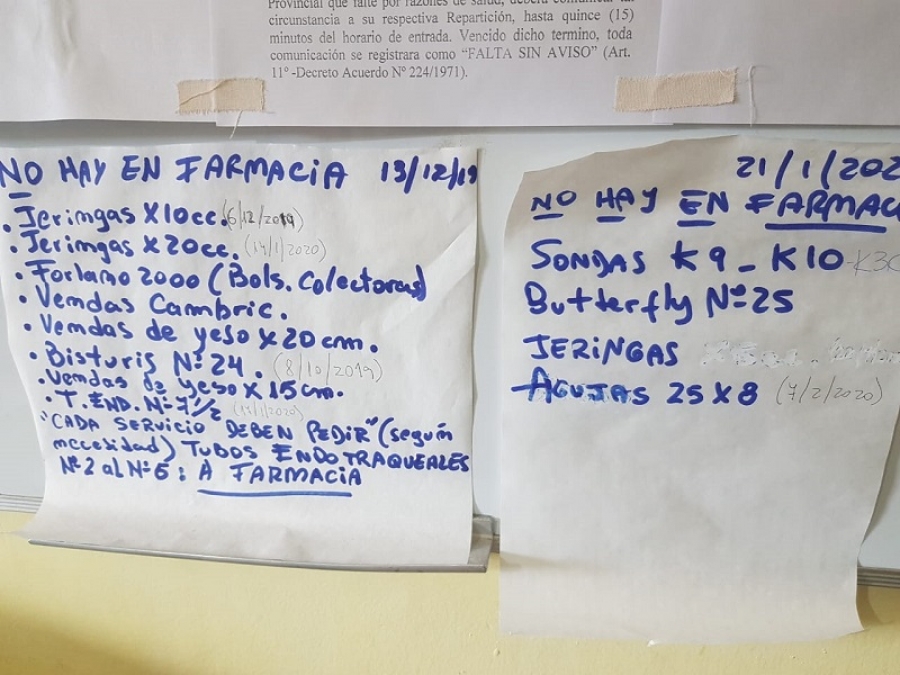 Provincial que falte por razones de salud, deberá comunicar
circunstancia a su respectiva Repartición, hasta quince (15)
minutos del horario de entrada. Vencido dicho termino, toda
comunicación se registrara como “FALTA SIN AVISO” (Art.
11º -Decreto Acuerdo Nº 224/1971).
NO HAY EN FARMACIA 13/12/19
. Jeringas X10cc. (6/12/2019)
• Jeringas x 20cc. (14/1/2020)
• Forlano 2000 (Bols. Colectoras)
• Vendas Cambric.
• Vendas de yeso x 20 cm.
• Bisturis Nº 24. (8/10/2019)
• Vendas de yeso x 15 cm.
• T. END. Nº 7 1/2 (14/1/2020)
"CADA SERVICIO DEBEN PEDIR" (según
necesidad) TUBOS ENDOTRAQUEALES
Nº 2 al Nº 6: A FARMACIA
21/1/202
NO HAY EN FARMAC
SONDAS K9 - K10 -K30
Butterfly Nº 25
JERINGAS
AGUJAS 25 X 8 (7/2/2020)